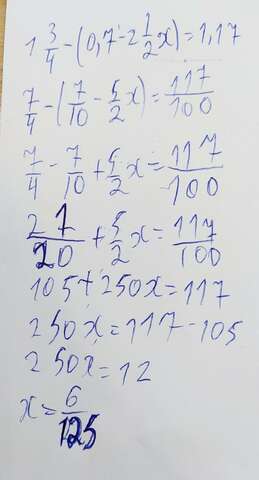 1 3/4 - (0,7 - 2 1/2 x) = 1,17
7/4 - (7/10 - 5/2 x) = 117/100
7/4 - 7/10 + 5/2 x = 117/100
21/20 + 5/2 x = 117/100
105 + 250x = 117
250x = 117 - 105
250x = 12
x = 6/125